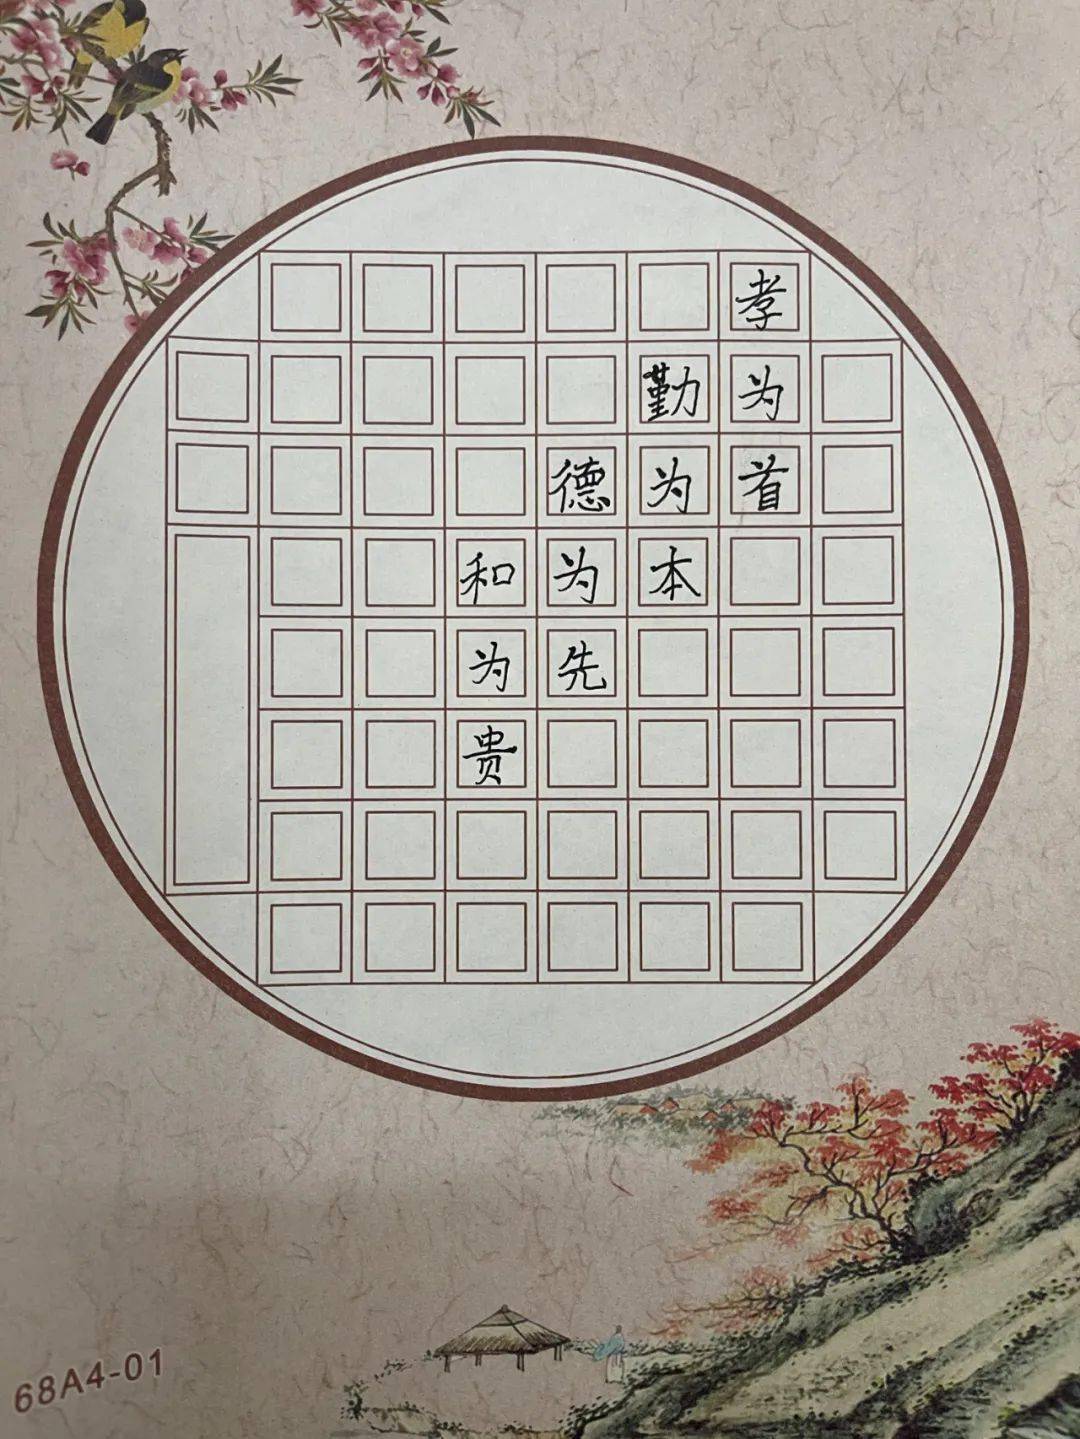 孝为首
勤为本
德为先
和为贵
68A4-01